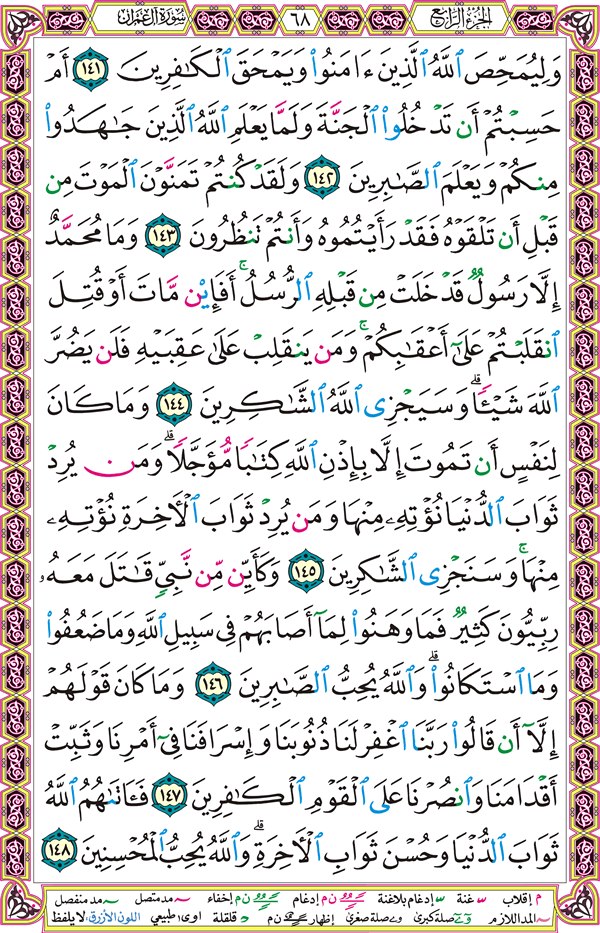 الجزء الرابع ٦٨ سورة آل عمران
وَلِيُمَحِّصَ ٱللَّهُ ٱلَّذِينَ ءَامَنُوا۟ وَيَمْحَقَ ٱلْكَـٰفِرِينَ ١٤١ أَمْ
حَسِبْتُمْ أَن تَدْخُلُوا۟ ٱلْجَنَّةَ وَلَمَّا يَعْلَمِ ٱللَّهُ ٱلَّذِينَ جَـٰهَدُوا۟
مِنكُمْ وَيَعْلَمَ ٱلصَّـٰبِرِينَ ١٤٢ وَلَقَدْ كُنتُمْ تَمَنَّوْنَ ٱلْمَوْتَ مِن
قَبْلِ أَن تَلْقَوْهُ فَقَدْ رَأَيْتُمُوهُ وَأَنتُمْ تَنظُرُونَ ١٤٣ وَمَا مُحَمَّدٌ
إِلَّا رَسُولٌ قَدْ خَلَتْ مِن قَبْلِهِ ٱلرُّسُلُ ۚ أَفَإِي۟ن مَّاتَ أَوْ قُتِلَ
ٱنقَلَبْتُمْ عَلَىٰٓ أَعْقَـٰبِكُمْ ۚ وَمَن يَنقَلِبْ عَلَىٰ عَقِبَيْهِ فَلَن يَضُرَّ
ٱللَّهَ شَيْـًٔا ۗ وَسَيَجْزِى ٱللَّهُ ٱلشَّـٰكِرِينَ ١٤٤ وَمَا كَانَ
لِنَفْسٍ أَن تَمُوتَ إِلَّا بِإِذْنِ ٱللَّهِ كِتَـٰبًا مُّؤَجَّلًا ۗ وَمَن يُرِدْ
ثَوَابَ ٱلدُّنْيَا نُؤْتِهِۦ مِنْهَا وَمَن يُرِدْ ثَوَابَ ٱلْـَٔاخِرَةِ نُؤْتِهِۦ
مِنْهَا ۚ وَسَنَجْزِى ٱلشَّـٰكِرِينَ ١٤٥ وَكَأَيِّن مِّن نَّبِىٍّ قَـٰتَلَ مَعَهُۥ
رِبِّيُّونَ كَثِيرٌ فَمَا وَهَنُوا۟ لِمَآ أَصَابَهُمْ فِى سَبِيلِ ٱللَّهِ وَمَا ضَعُفُوا۟
وَمَا ٱسْتَكَانُوا۟ ۗ وَٱللَّهُ يُحِبُّ ٱلصَّـٰبِرِينَ ١٤٦ وَمَا كَانَ قَوْلَهُمْ
إِلَّآ أَن قَالُوا۟ رَبَّنَا ٱغْفِرْ لَنَا ذُنُوبَنَا وَإِسْرَافَنَا فِىٓ أَمْرِنَا وَثَبِّتْ
أَقْدَامَنَا وَٱنصُرْنَا عَلَى ٱلْقَوْمِ ٱلْكَـٰفِرِينَ ١٤٧ فَـَٔاتَىٰهُمُ ٱللَّهُ
ثَوَابَ ٱلدُّنْيَا وَحُسْنَ ثَوَابِ ٱلْـَٔاخِرَةِ ۗ وَٱللَّهُ يُحِبُّ ٱلْمُحْسِنِينَ ١٤٨
م إقلاب غنة إدغام بلاغنة ن م إدغام ن م إخفاء مد متصل مد منفصل
المد اللازم صلة كبرى صلة صغرى إظهار ن م قلقلة اوى: طبيعي اللون الأزرق: لا يلفظ